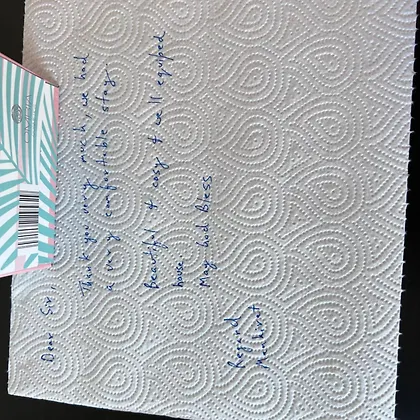 Dear Sir,
Thank you very much, we had
a very comfortable stay.
Beautiful & cosy & well equiped
house.
May God Bless
Regard